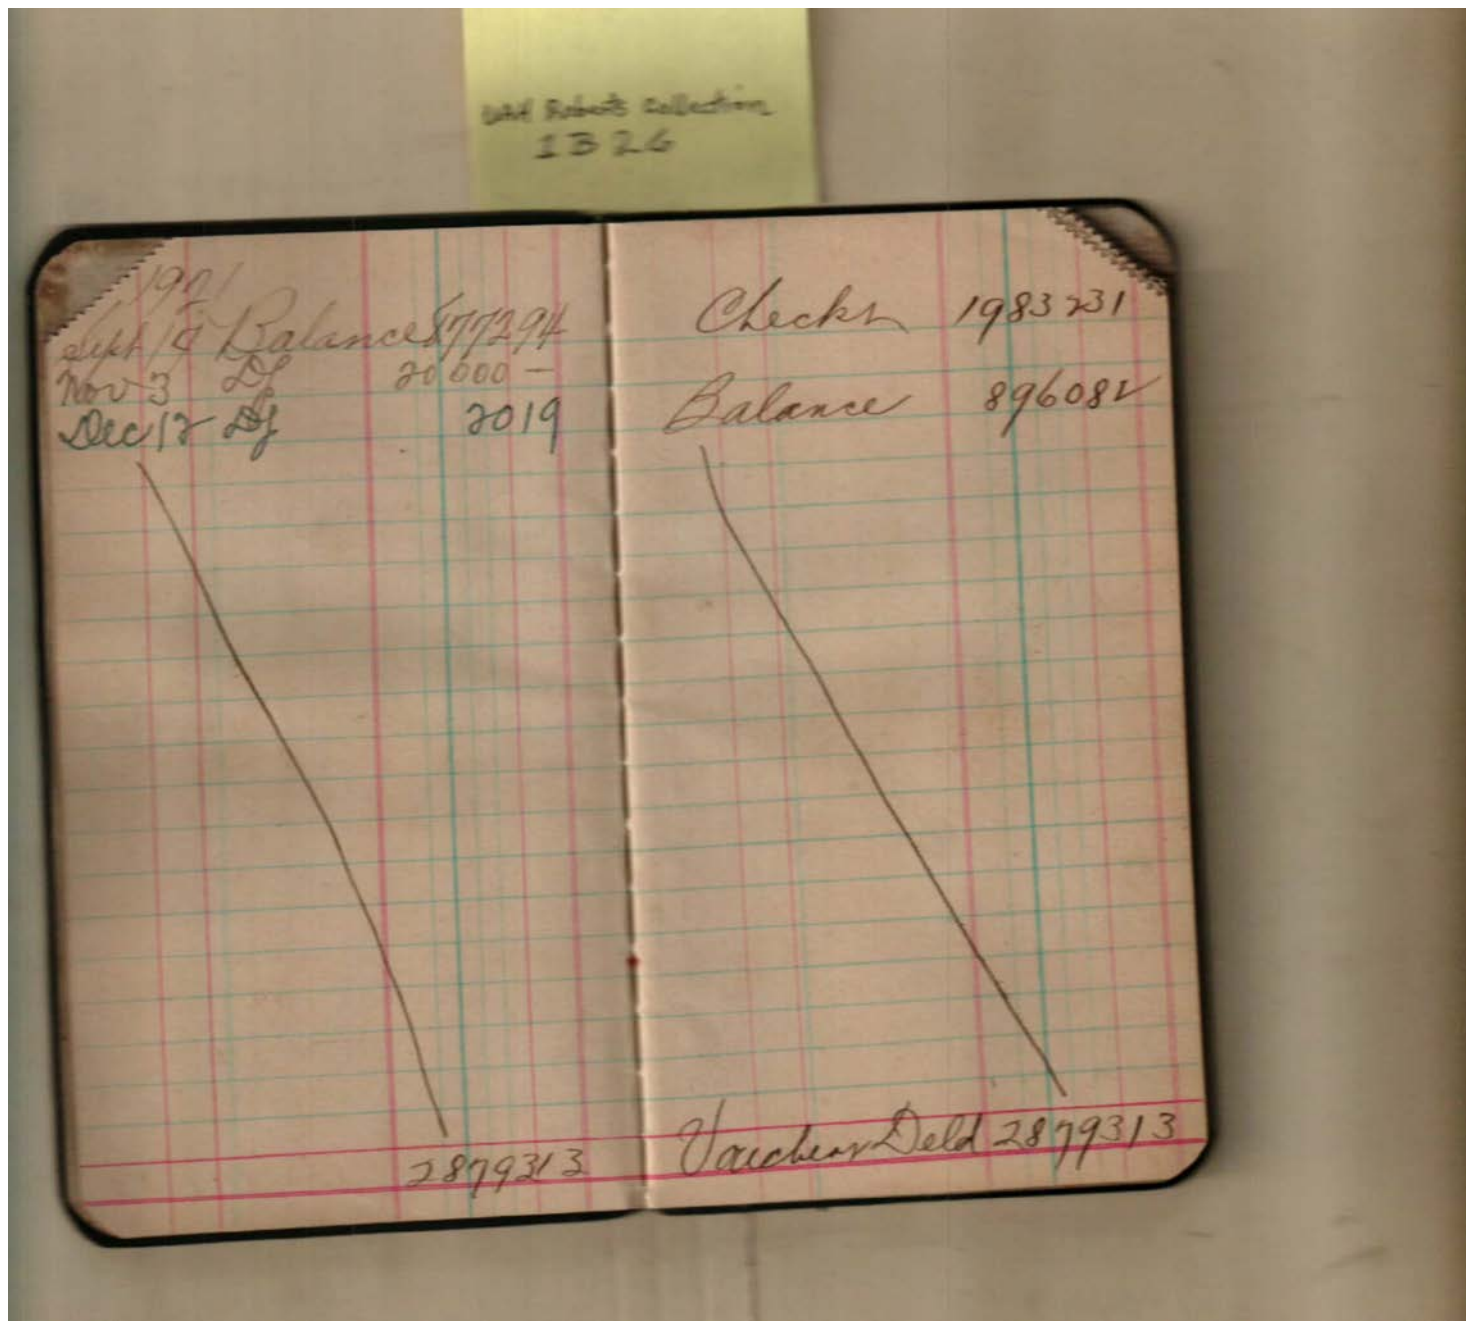 UAH Roberts Collection
1B26
1921
Sept 19 Balance 877294
Nov 3 20 000 —
Dec 12 2019
2879313
Checks 1983231
Balance 896082
Vouchers Deld 2879313